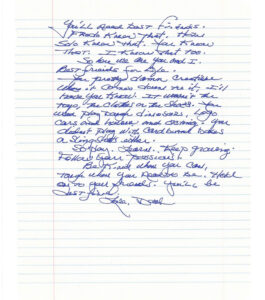 You'll need best friends.
Frodo knew that. Han
Solo knew that. You know
that. I know that too.
So here we are you and I.
Best friends for life.
pretty damn creative
when it comes down to it. I'll
have you know. It wasn't the
toys, the clothes or the shoes. You
when play rough dinosaurs, Lego
cars and
didn't play with cardboard boxes
a slingshots either.
So play. Learn. Keep growing.
Follow your passions.
Be kind when you can,
tough when you need to be. Hold
on to your friends. You'll be
just fine.
Love, Dad